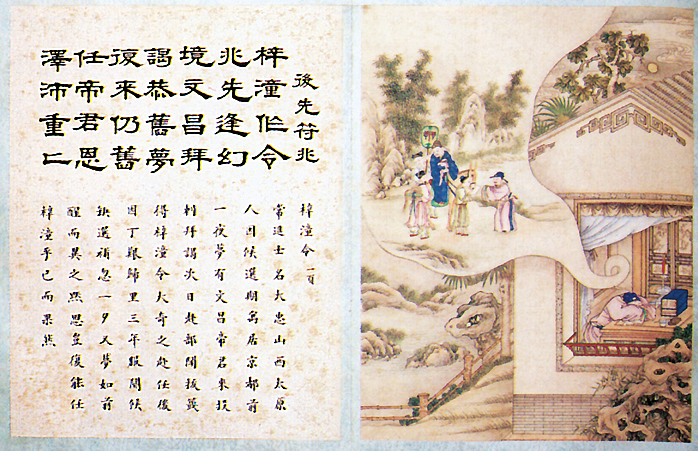 後先符兆
梓潼作令
兆先逢幻
境文昌拜
謁恭舊夢
復來仍舊
任帝君恩
澤沛重〻
梓潼令 一頁
常進士名大忠山西太原
人因候選期寓居京都前
一夜夢有文昌帝君來投
刺拜謁次日赴部開拔籤
得梓潼令大奇之赴任後
因丁艱歸里三年服闋候
缺選補忽一夕又夢如前
醒而異之然思豈復能任
梓潼乎已而果然